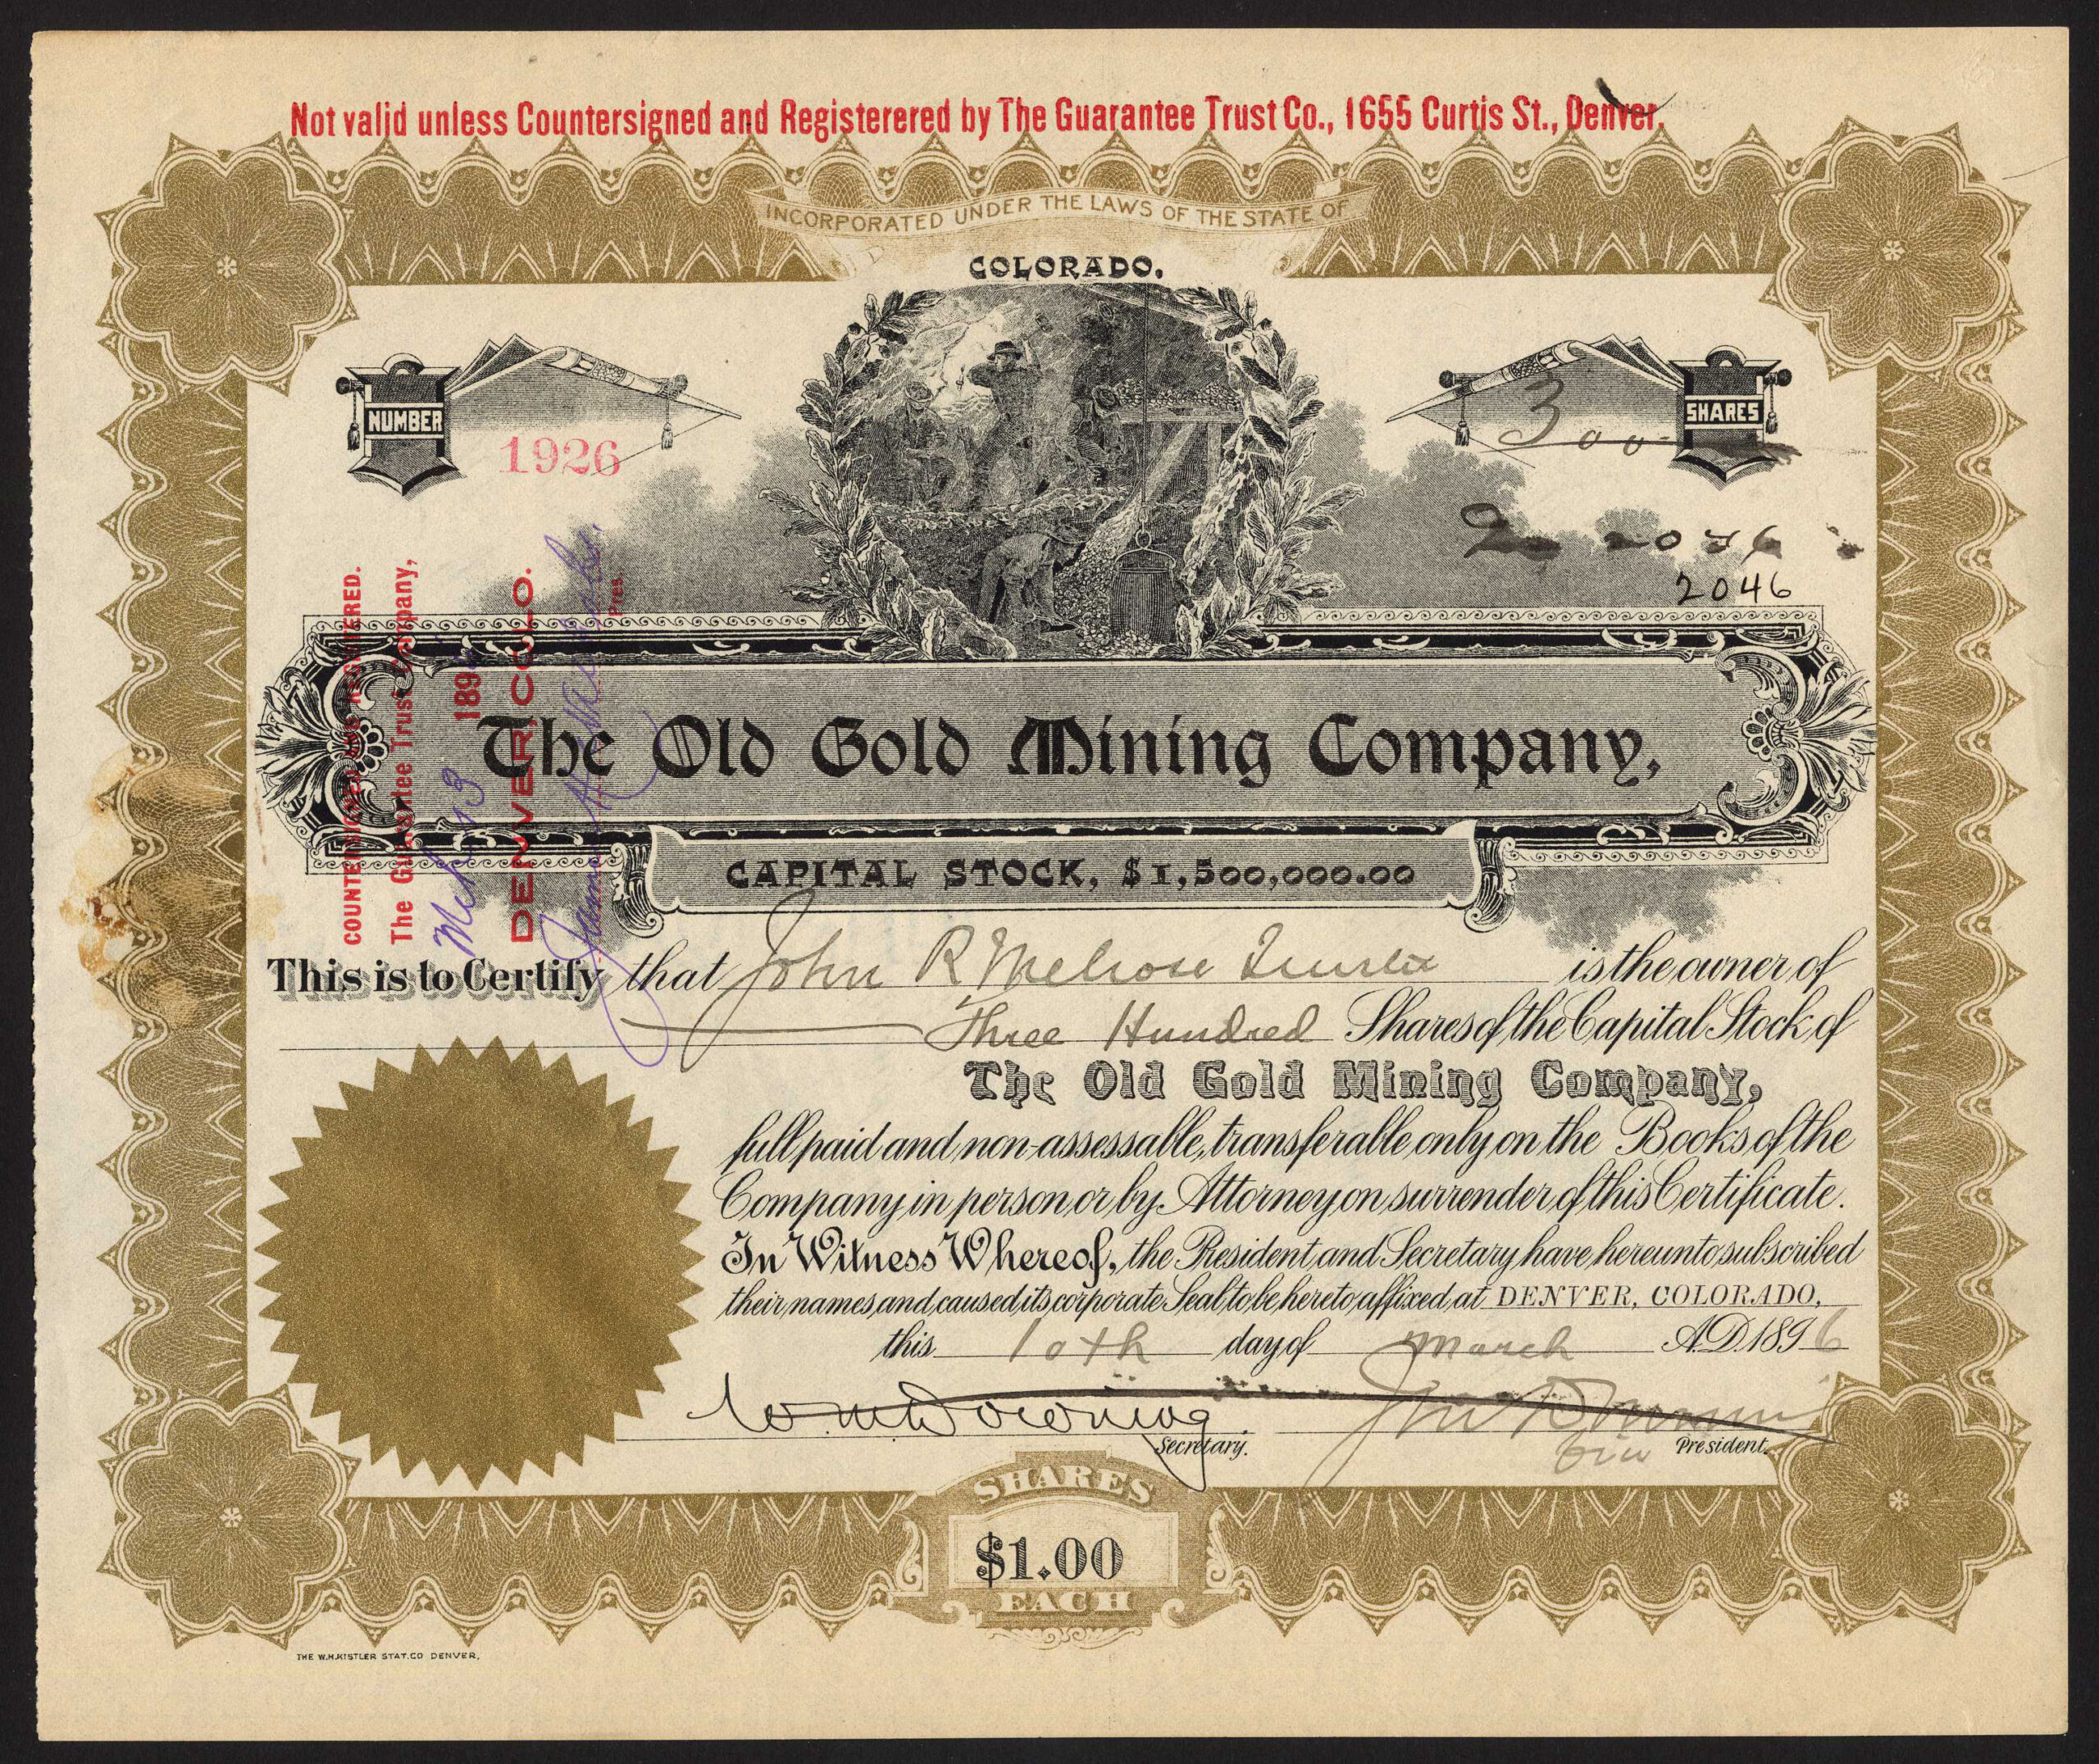 Not valid unless Countersigned and Registerered by The Guarantee Trust Co., 1655 Curtis St., Denver.
INCORPORATED UNDER THE LAWS OF THE STATE OF
COLORADO.
NUMBER
1926
SHARES
300
2046
2046
COUNTERSIGNED AND REGISTERED.
The Guarantee Trust Company,
Mch 13 1896
DENVER, COLO.
Pres.
The Old Gold Mining Company,
CAPITAL STOCK, $1,500,000.00
This is to Certify that John R Melrose Trustee is the owner of
Three Hundred Shares of the Capital Stock of
The Old Gold Mining Company,
full paid and non-assessable, transferable only on the Books of the
Company in person or by Attorney on surrender of this Certificate.
In Witness Whereof, the President and Secretary have hereunto subscribed
their names and caused its corporate Seal to be hereto affixed at DENVER, COLORADO,
this 10th day of March A.D. 1896
Wm W Downing
Secretary.
President.
SHARES
$1.00
EACH
THE W.H.KISTLER STAT.CO DENVER,